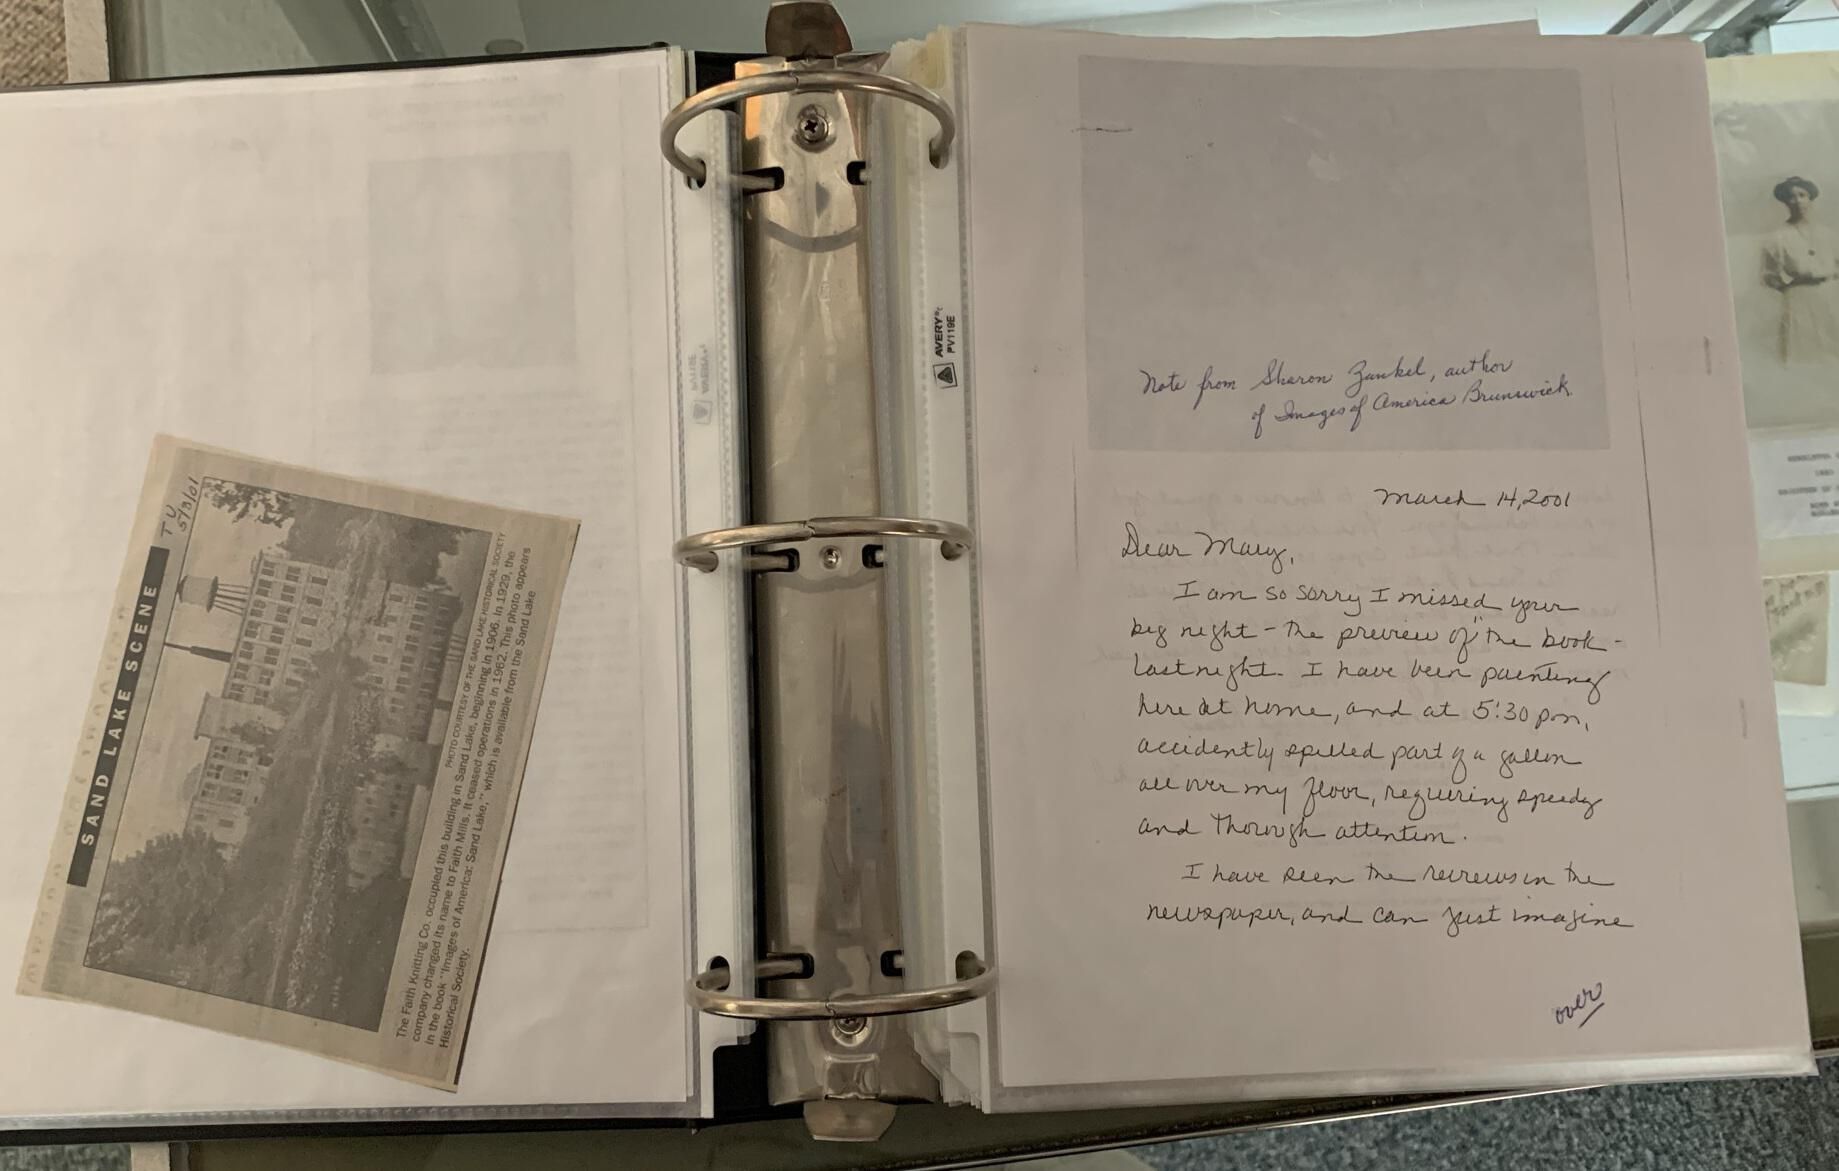 TU
5/3/01
SAND LAKE SCENE
PHOTO COURTESY OF THE SAND LAKE HISTORICAL SOCIETY
The Faith Knitting Co. occupied this building in Sand Lake, beginning in 1906. In 1929, the
company changed its name to Faith Mills. It ceased operations in 1962. This photo appears
in the book "Images of America: Sand Lake," which is available from the Sand Lake
Historical Society.
AVERY
PV119E
Note from Sharon Zankel, author
of Images of America Brunswick
March 14, 2001
Dear Mary,
I am so sorry I missed your
big night - the preview of "the book -
last night. I have been painting
here at home, and at 5:30 pm,
accidently spilled part of a gallon
all over my floor, requiring speedy
and thorough attention.
I have seen the reviews in the
newspaper, and can just imagine
over